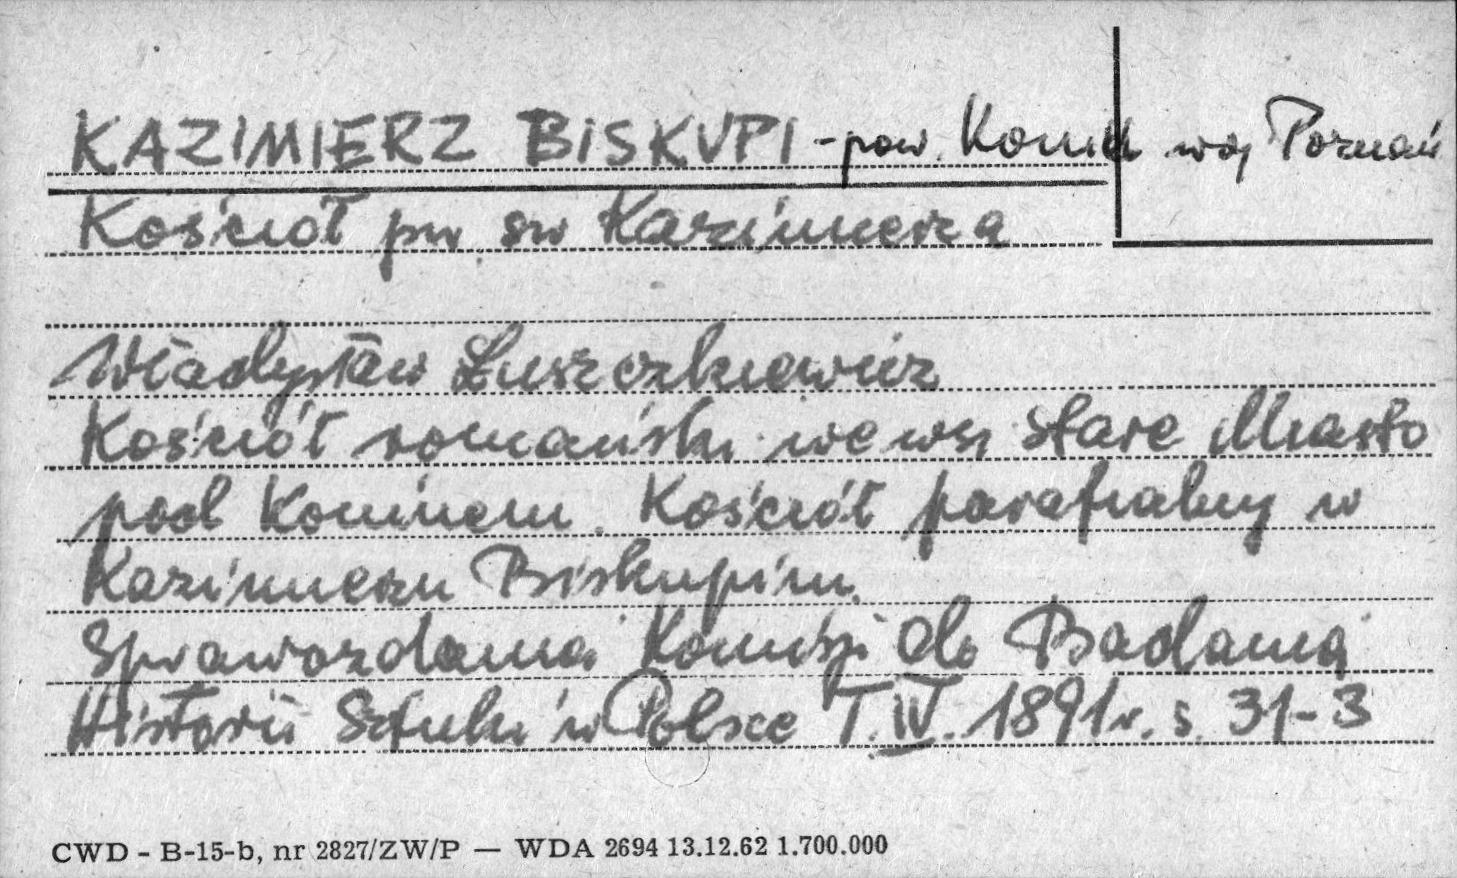 KAZIMIERZ BISKUPI - pow. Konin woj Poznań
Kościół pw św Kazimierza
Władysław Łuszczkiewicz
Kościół romański we wsi Stare Miasto
pod Koninem. Kościół parafialny w
Kazimierzu Biskupim.
Sprawozdania Komisji do Badania
Historii Sztuki w Polsce T.IV. 1891r. s. 31-3
CWD - B-15-b, nr 2827/ZW/P — WDA 2694 13.12.62 1.700.000